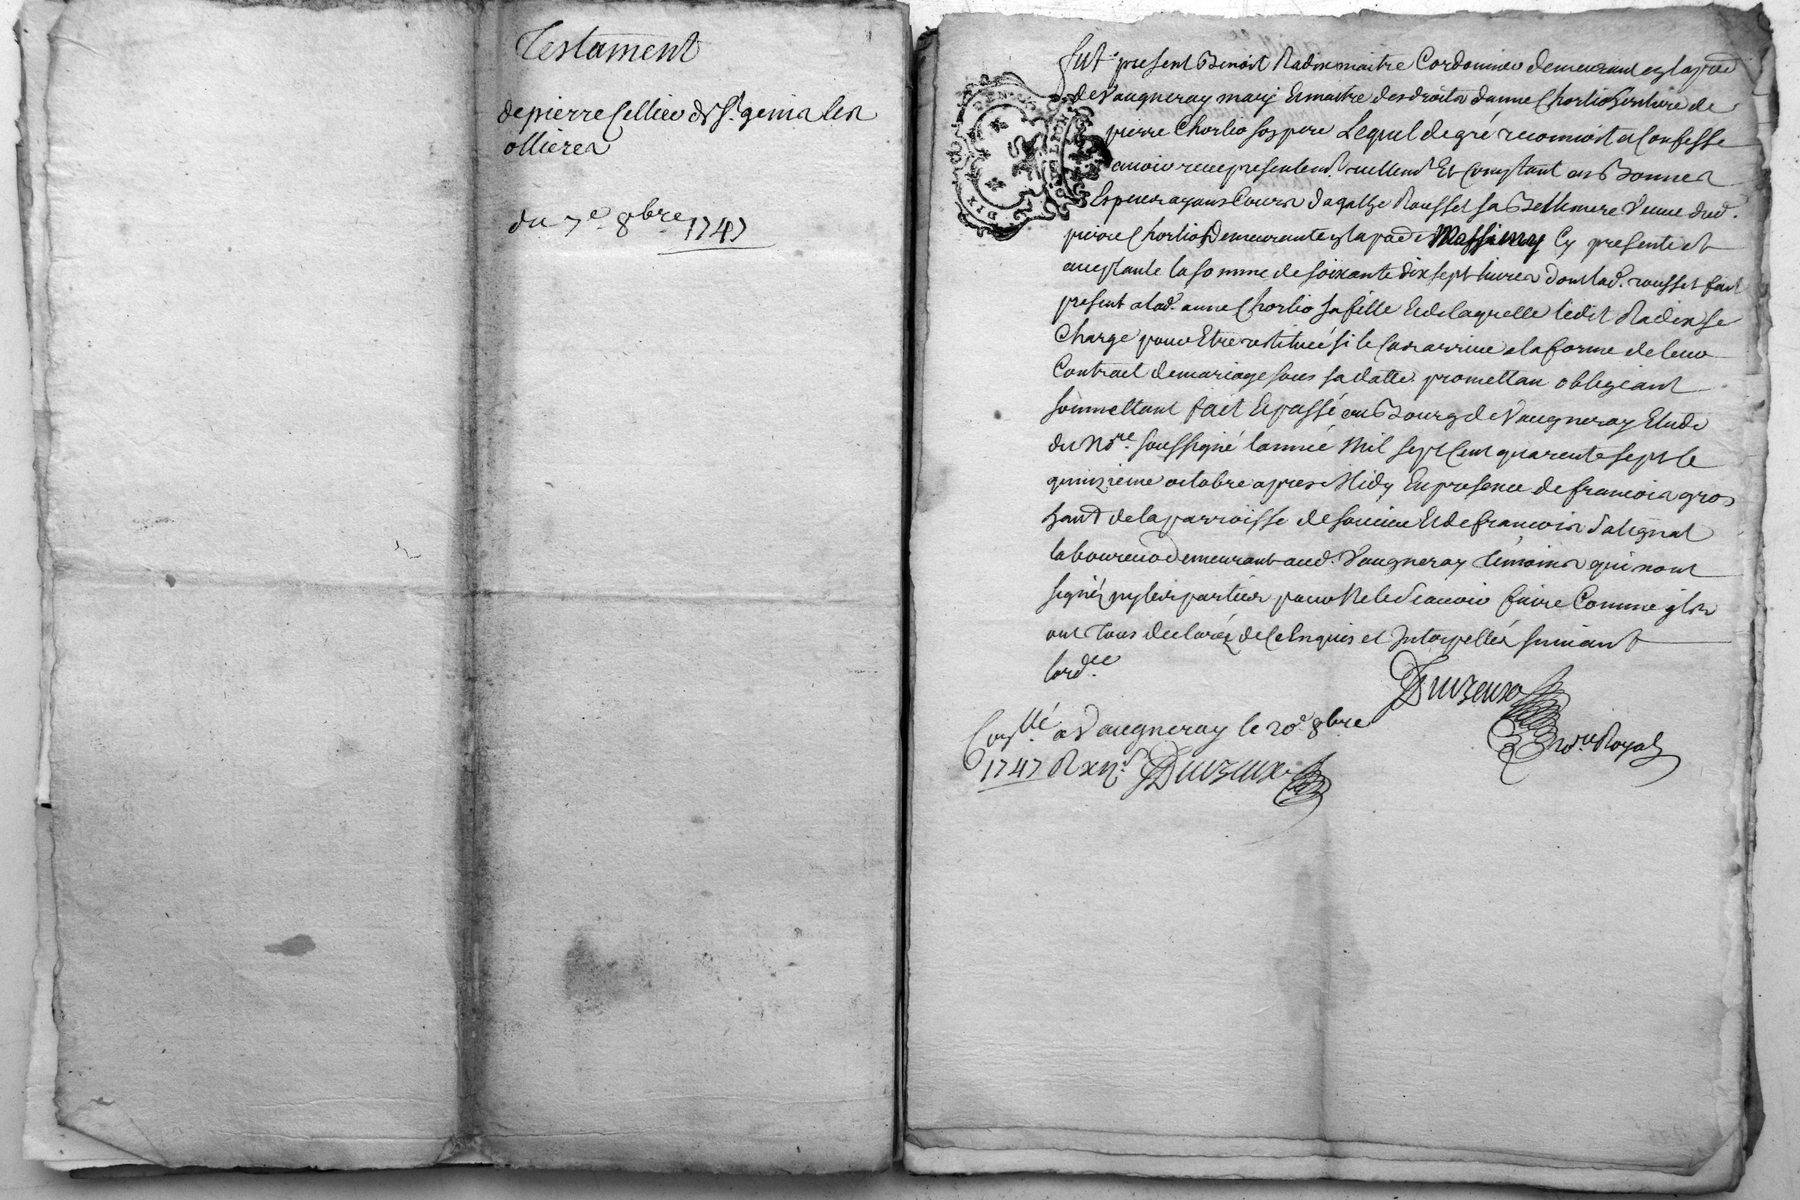 Testament
de pierre Cellier de St. genis les
ollieres
du 7e. 8bre 1747
fut present Benoit Radix maitre Cordonnier demeurant en la parr.
de Vaugneray mary et maitre des droits d'anne Chorlio heritiere de
pierre Chorlio son pere Lequel de gré reconnoit et Confesse
avoir receu presentemt. reellemt. Et Comptant en Bonnes
Especes ayans Cours d'agathe Rousset sa Bellemere Veuve dud.
pierre Chorlio Demeurante en la par. de Messimy Cy presente et
acceptante la somme de soixante dix sept livres dont lad. rousset fait
present a lad. anne Chorlio sa fille Et de laquelle ledit Radix se
Charge pour Etre restituée si le Cas arrive a la forme de leur
Contract de mariage sous sa datte promettan obligeant
soumettant fait Et passé au Bourg de Vaugneray Etude
du Nore. soussigné l'année Mil sept Cent quarente sept le
quinzieme octobre apres Midy En presence de francois gros
hant de la parroisse de soucieu Et de francois Salignat
laboureur demeurant aud. Vaugneray temoins qui n'ont
signé ny les parties pour ne le scavoir faire Comme ils
ont tous declaréz de ce Enquis et Interpellés suivant
l'ordce.
Duvzeux
nore. Royal
Conllé a Vaugneray le 20e. 8bre
1747 Duvzeux